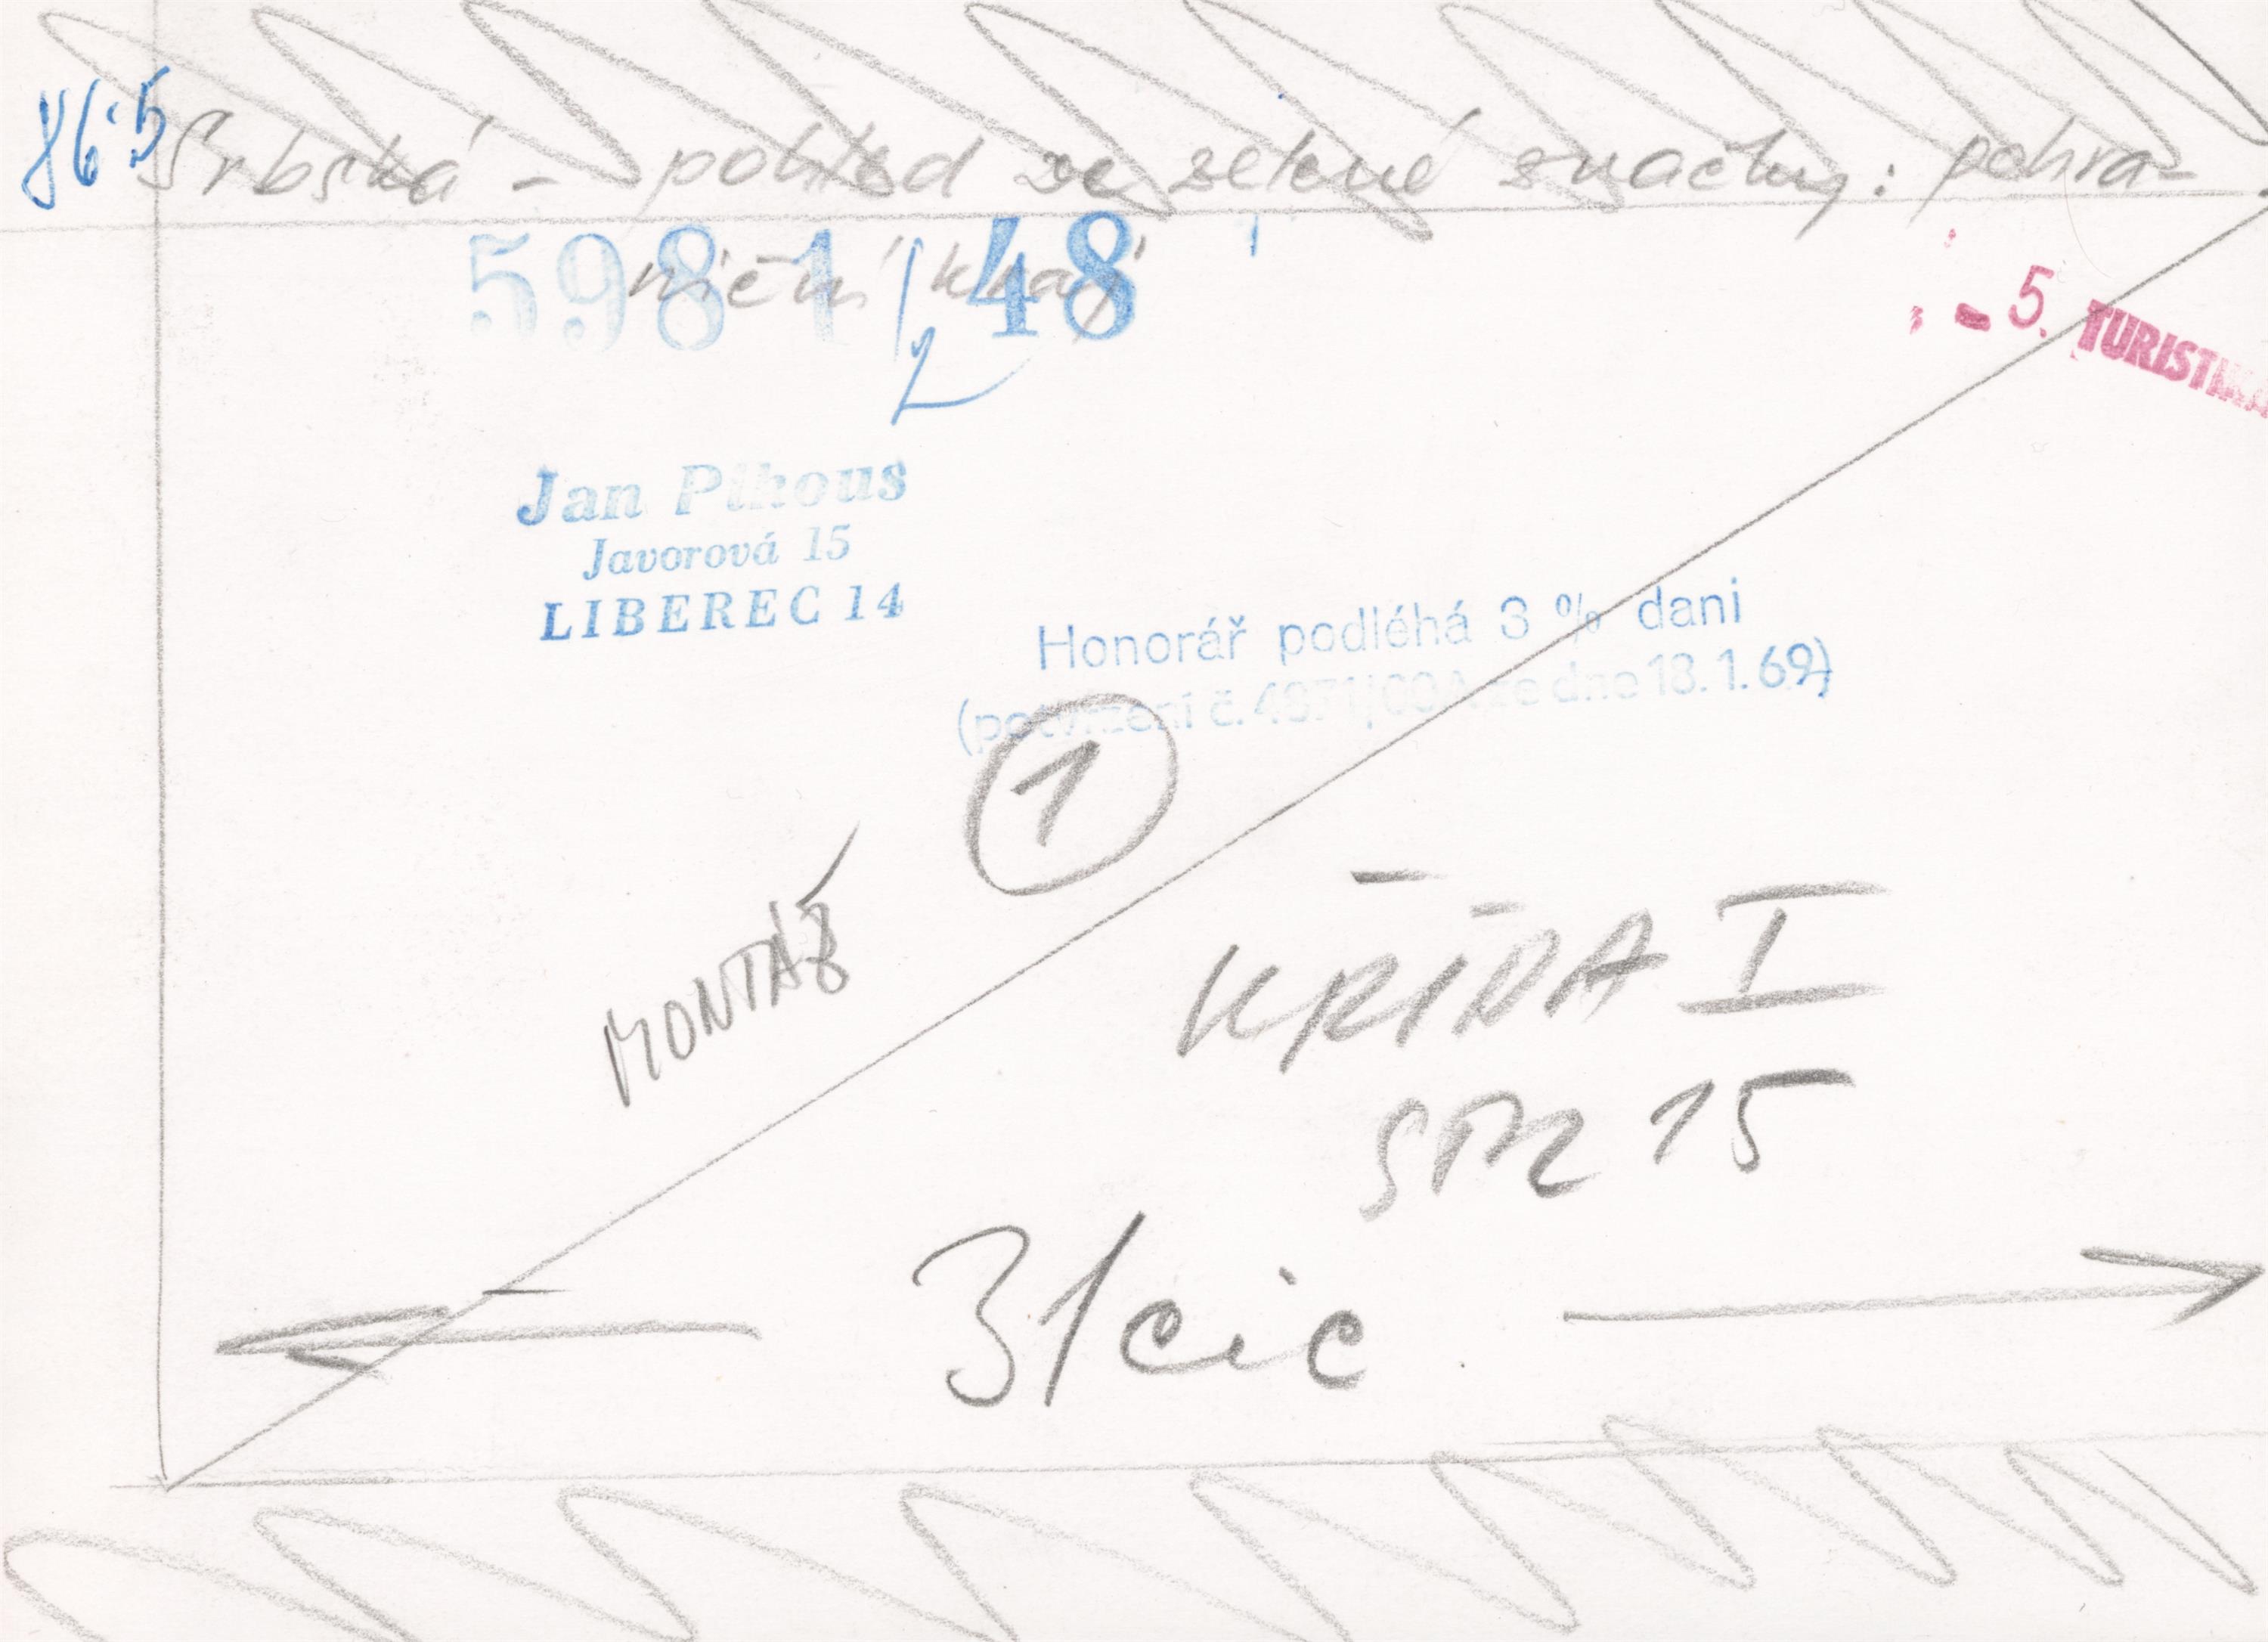 86·5
Srbská - pohled ze zelené značky: pohra-
niční kraj
5981/48
2
- 5. TURISTIKA
Jan Pikous
Javorová 15
LIBEREC 14
Honorář podléhá 3 % dani
(potvrzení č. ze dne 13.1.69)
1
MONTÁŽ
KŘÍDA I
STR 15
31 cic